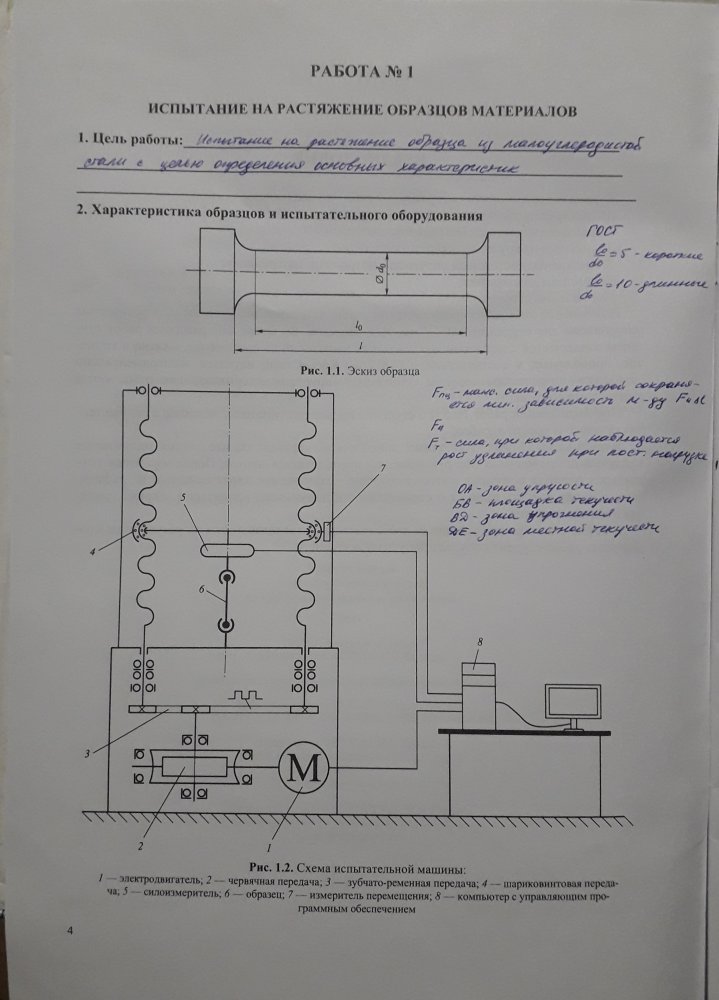 РАБОТА № 1
ИСПЫТАНИЕ НА РАСТЯЖЕНИЕ ОБРАЗЦОВ МАТЕРИАЛОВ
1. Цель работы: Испытание на растяжение образца из малоуглеродистой
стали с целью определения основных характеристик
2. Характеристика образцов и испытательного оборудования
ГОСТ
l₀/d₀ = 5 - короткие
l₀/d₀ = 10 - длинные
Ø d₀
l₀
l
Рис. 1.1. Эскиз образца
Fпц - макс. сила, для которой сохраня-
ется лин. зависимость м-ду F и Δl
Fт - сила, при которой наблюдается
рост удлинения при пост. нагрузке
ОА - зона упругости
БВ - площадка текучести
ВД - зона упрочнения
ДЕ - зона местной текучести
7
5
4
6
8
3
М
2
1
Рис. 1.2. Схема испытательной машины:
1 — электродвигатель; 2 — червячная передача; 3 — зубчато-ременная передача; 4 — шариковинтовая переда-
ча; 5 — силоизмеритель; 6 — образец; 7 — измеритель перемещения; 8 — компьютер с управляющим про-
граммным обеспечением
4